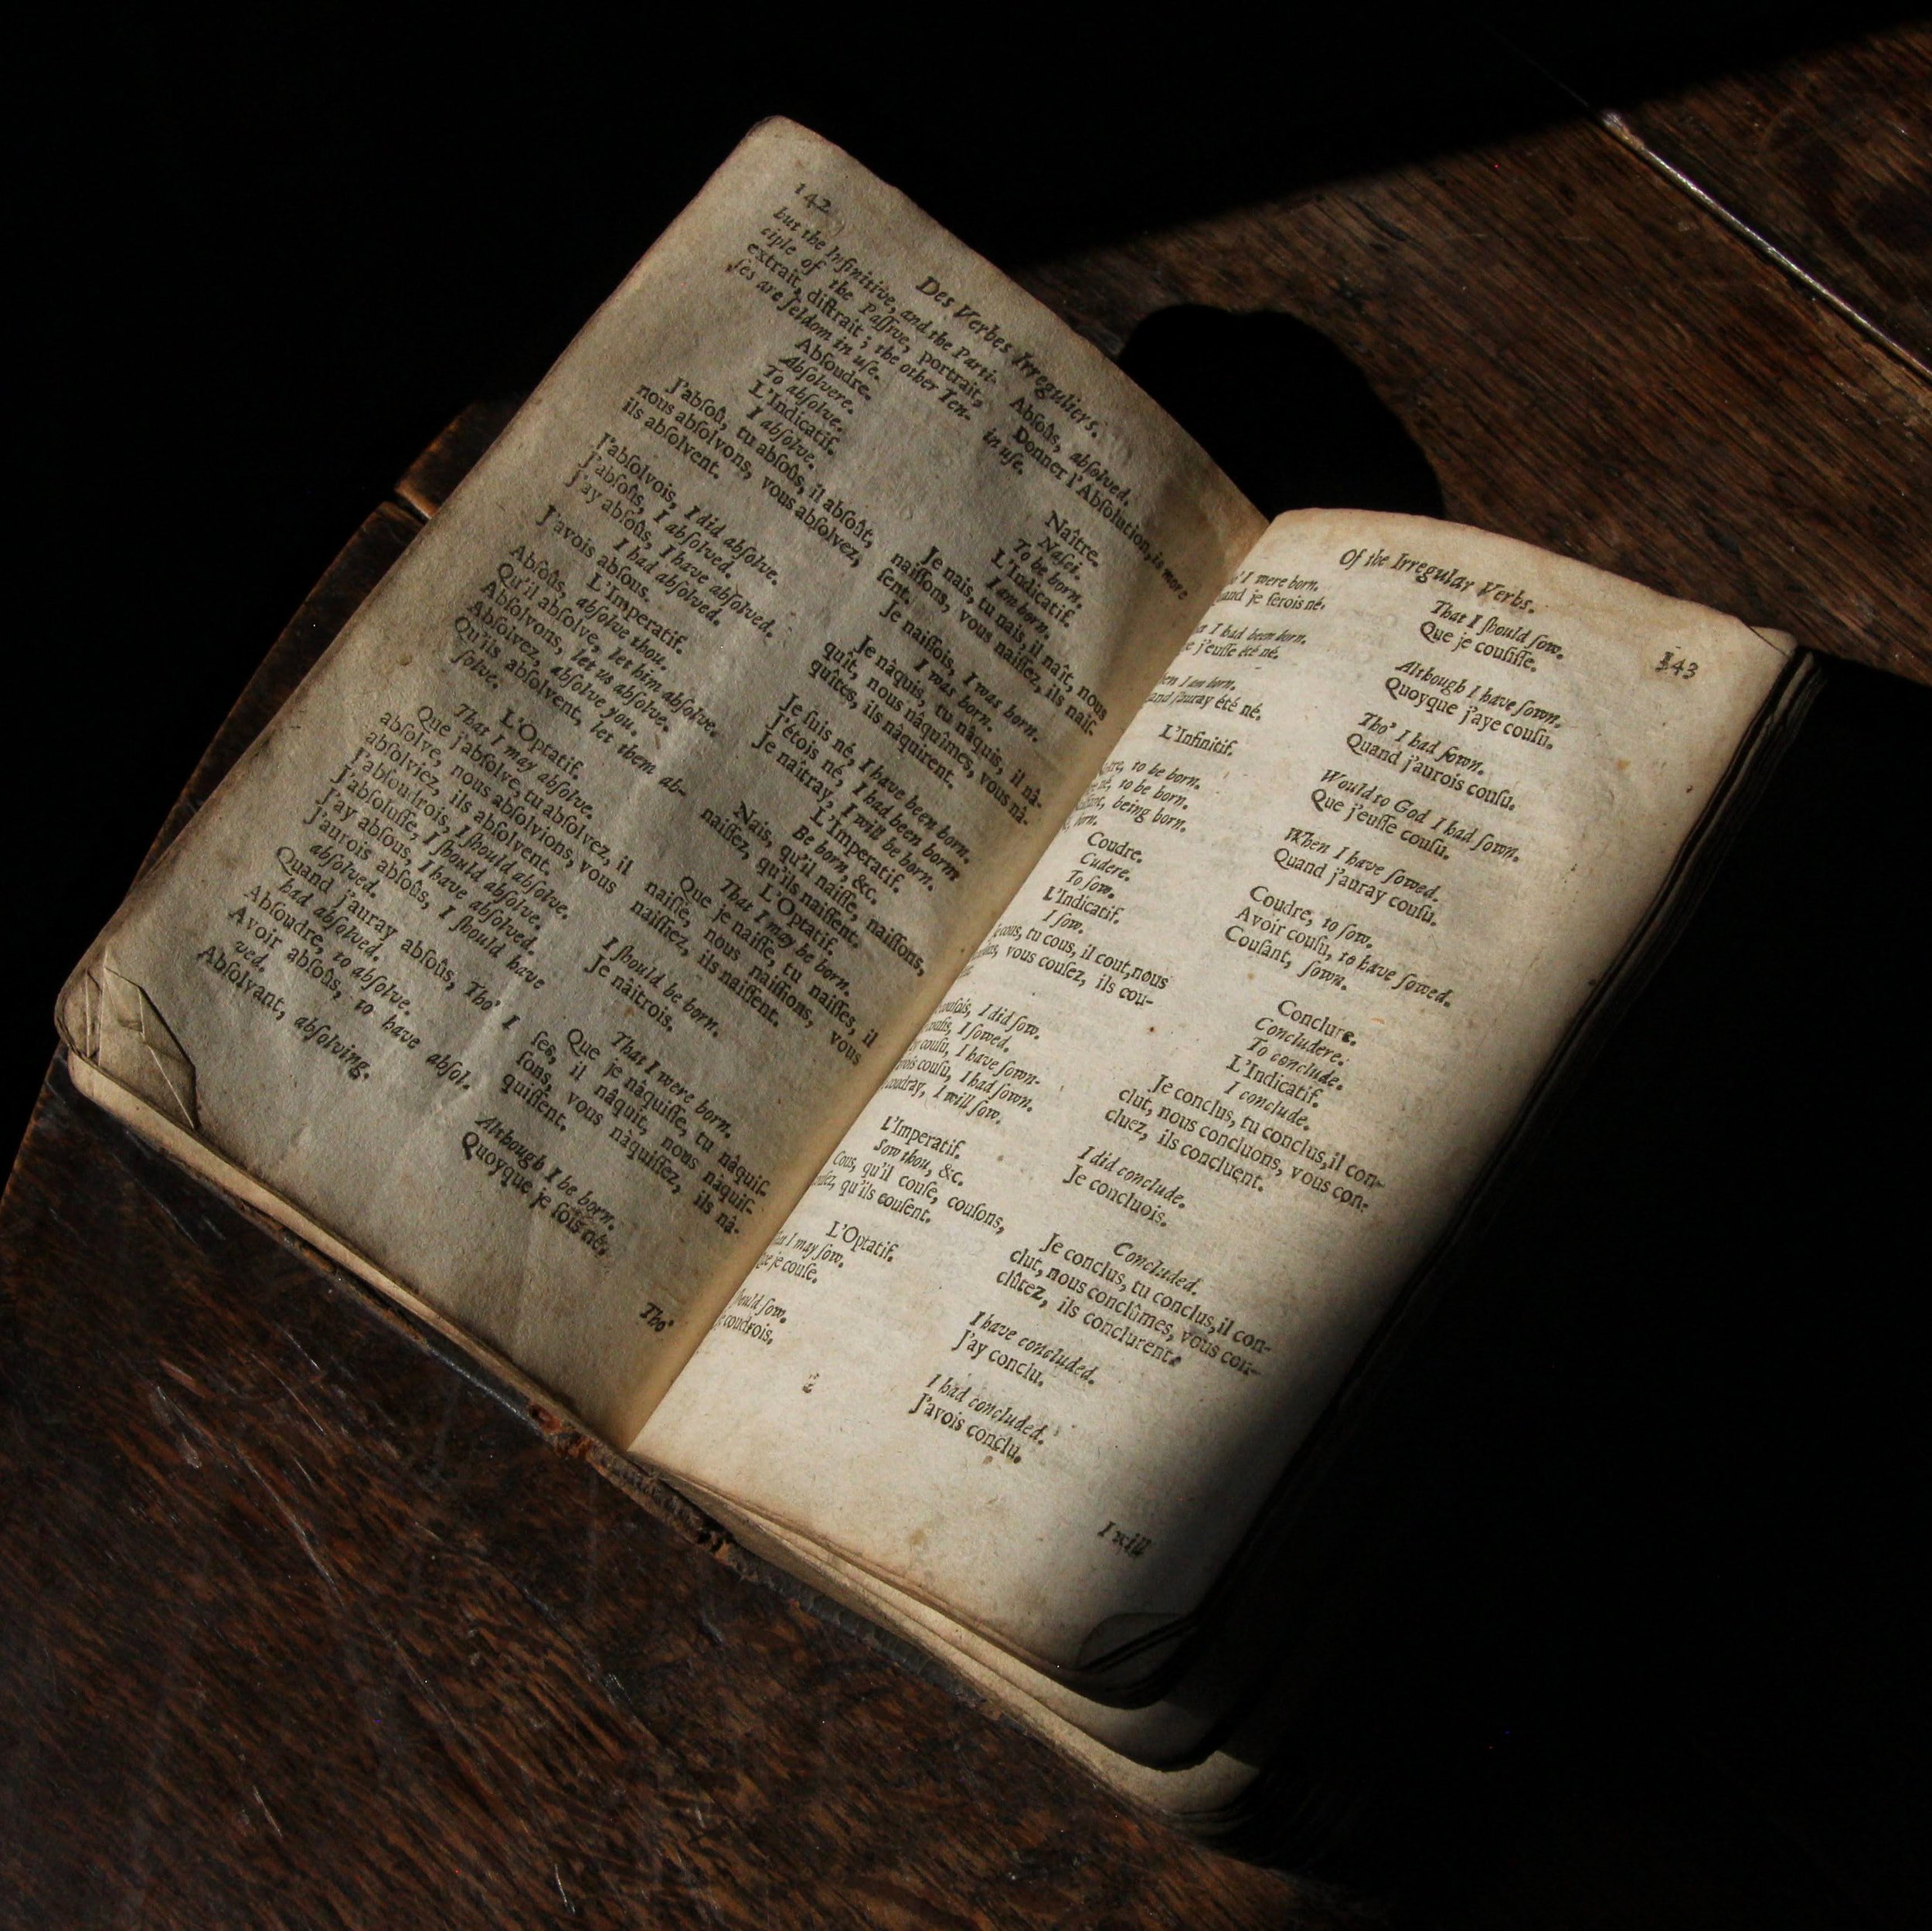 142
Des Verbes Irreguliers.
but the Infinitive, and the Parti-
ciple of the Paſſive, portrait,
extrait, diſtrait; the other Ten-
ſes are ſeldom in uſe.
Abſoudre.
Abſolvere.
To abſolve.
L'Indicatif.
I abſolve.
J'abſoû, tu abſoûs, il abſoût,
nous abſolvons, vous abſolvez,
ils abſolvent.
J'abſolvois, I did abſolve.
J'abſoûs, I abſolved.
J'ay abſoûs, I have abſolved.
I had abſolved.
J'avois abſous.
L'Imperatif.
Abſoûs, abſolve thou.
Qu'il abſolve, let him abſolve.
Abſolvons, let us abſolve.
Abſolvez, abſolve you.
Qu'ils abſolvent, let them ab-
ſolve.
L'Optatif.
That I may abſolve.
Que j'abſolve, tu abſolvez, il
abſolve, nous abſolvions, vous
abſolviez, ils abſolvent.
J'abſoudrois, I ſhould abſolve.
J'abſoluſſe, I ſhould abſolve.
J'ay abſous, I have abſolved.
J'aurois abſoûs, I ſhould have
abſolved.
Quand j'auray abſoûs, Tho' I
had abſolved.
Abſoudre, to abſolve.
Avoir abſoûs, to have abſol-
ved.
Abſolvant, abſolving.
Abſoûs, abſolved.
Donner l'Abſolution, is more
in uſe.
Naître.
Naſci.
To be born.
L'Indicatif.
I am born.
Je nais, tu nais, il naît, nous
naiſſons, vous naiſſez, ils naiſ-
ſent.
Je naiſſois, I was born.
I was born.
Je nâquis, tu nâquis, il nâ-
quît, nous nâquîmes, vous nâ-
quîtes, ils nâquirent.
Je ſuis né, I have been born.
J'étois né, I had been born.
Je naîtray, I will be born.
L'Imperatif.
Be born, &c.
Nais, qu'il naiſſe, naiſſons,
naiſſez, qu'ils naiſſent.
L'Optatif.
That I may be born.
Que je naiſſe, tu naiſſes, il
naiſſe, nous naiſſions, vous
naiſſiez, ils naiſſent.
I ſhould be born.
Je naîtrois.
That I were born.
Que je nâquiſſe, tu nâquiſ-
ſes, il nâquit, nous nâquiſ-
ſons, vous nâquiſſez, ils nâ-
quiſſent.
Although I be born.
Quoyque je ſois né,
Tho'
Of the Irregular Verbs.
143
I were born.
je ſerois né.
I had been born.
j'euſſe été né.
I am born.
j'auray été né.
L'Infinitif.
to be born.
né, to be born.
being born.
born.
Coudre.
Cudere.
To ſow.
L'Indicatif.
I ſow.
cous, tu cous, il cout, nous
vous couſez, ils cou-
I did ſow.
I ſowed.
couſu, I have ſown.
couſu, I had ſown.
I will ſow.
L'Imperatif.
Sow thou, &c.
Cous, qu'il couſe, couſons,
qu'ils couſent.
L'Optatif.
I may ſow.
je couſe.
ſhould ſow.
coudrois,
That I ſhould ſow.
Que je couſiſſe.
Although I have ſown.
Quoyque j'aye couſu.
Tho' I had ſown.
Quand j'aurois couſu.
Would to God I had ſown.
Que j'euſſe couſu.
When I have ſowed.
Quand j'auray couſu.
Coudre, to ſow.
Avoir couſu, to have ſowed.
Couſant, ſown.
Conclure.
Concludere.
To conclude.
L'Indicatif.
I conclude.
Je conclus, tu conclus, il con-
clut, nous concluons, vous con-
cluez, ils concluent.
I did conclude.
Je concluois.
Concluded.
Je conclus, tu conclus, il con-
clut, nous conclûmes, vous con-
clûtez, ils conclurent.
I have concluded.
J'ay conclu.
I had concluded.
J'avois conclu.
I will